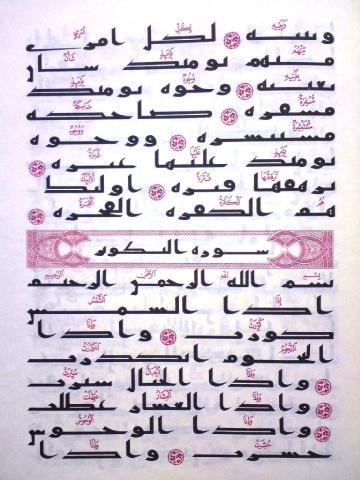 وبنيه ۝ لكل امرئ
منهم يومئذ شأن
يغنيه ۝ وجوه يومئذ
مسفرة ۝ ضاحكة
مستبشرة ۝ ووجوه
يومئذ عليها غبرة ۝
ترهقها قترة ۝ اولئك
هم الكفرة الفجرة ۝
سورة التكوير
بسم الله الرحمن الرحيم
اذا الشمس
كورت ۝ واذا
النجوم انكدرت
۝ واذا الجبال سيرت
۝ واذا العشار عطلت
۝ واذا الوحوش
حشرت ۝ واذا